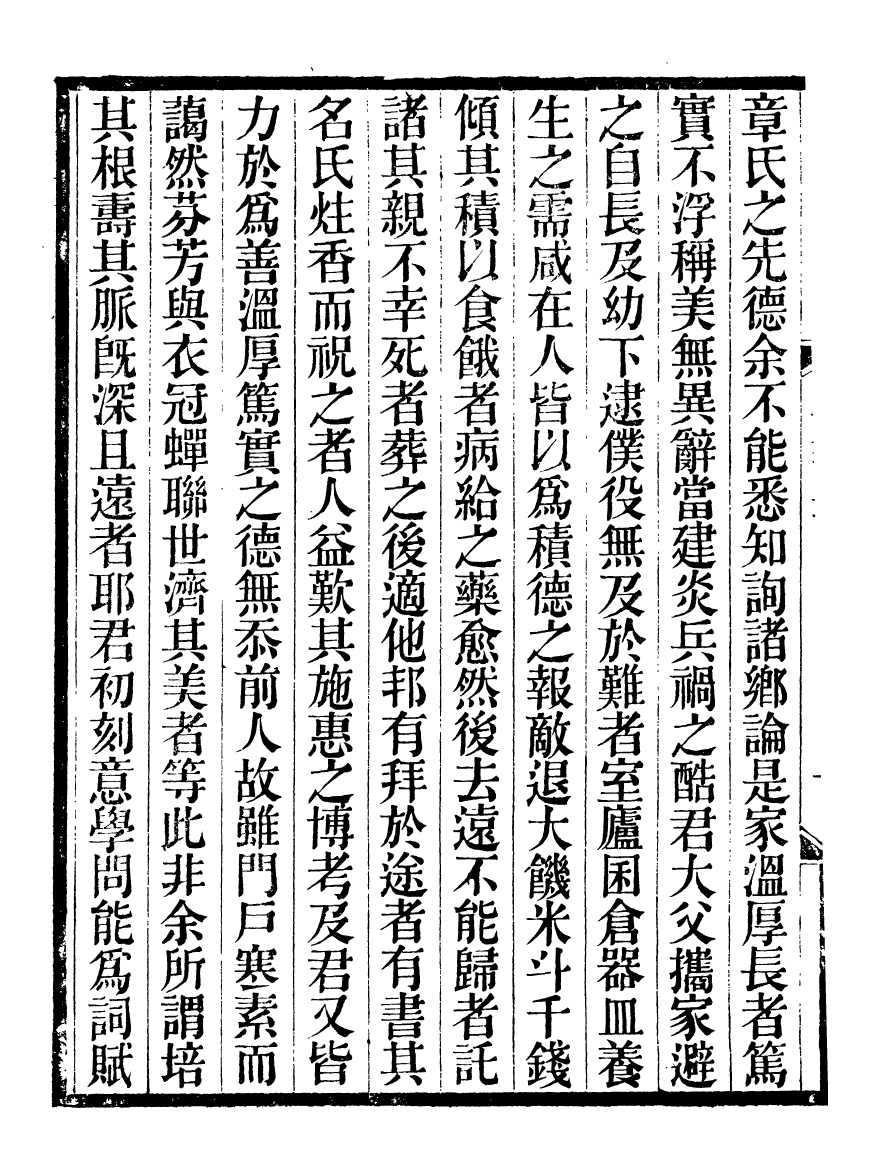 章氏之先德余不能悉知詢諸鄉論是家溫厚長者篤
實不浮稱美無異辭當建炎兵禍之酷君大父攜家避
之自長及幼下逮僕役無及於難者室廬囷倉器皿養
生之需咸在人皆以爲積德之報敵退大饑米斗千錢
傾其積以食餓者病給之藥愈然後去遠不能歸者託
諸其親不幸死者葬之後適他邦有拜於途者有書其
名氏炷香而祝之者人益歎其施惠之博考及君又皆
力於爲善溫厚篤實之德無忝前人故雖門戶寒素而
藹然芬芳與衣冠蟬聯世濟其美者等此非余所謂培
其根壽其脈旣深且遠者耶君初刻意學問能爲詞賦